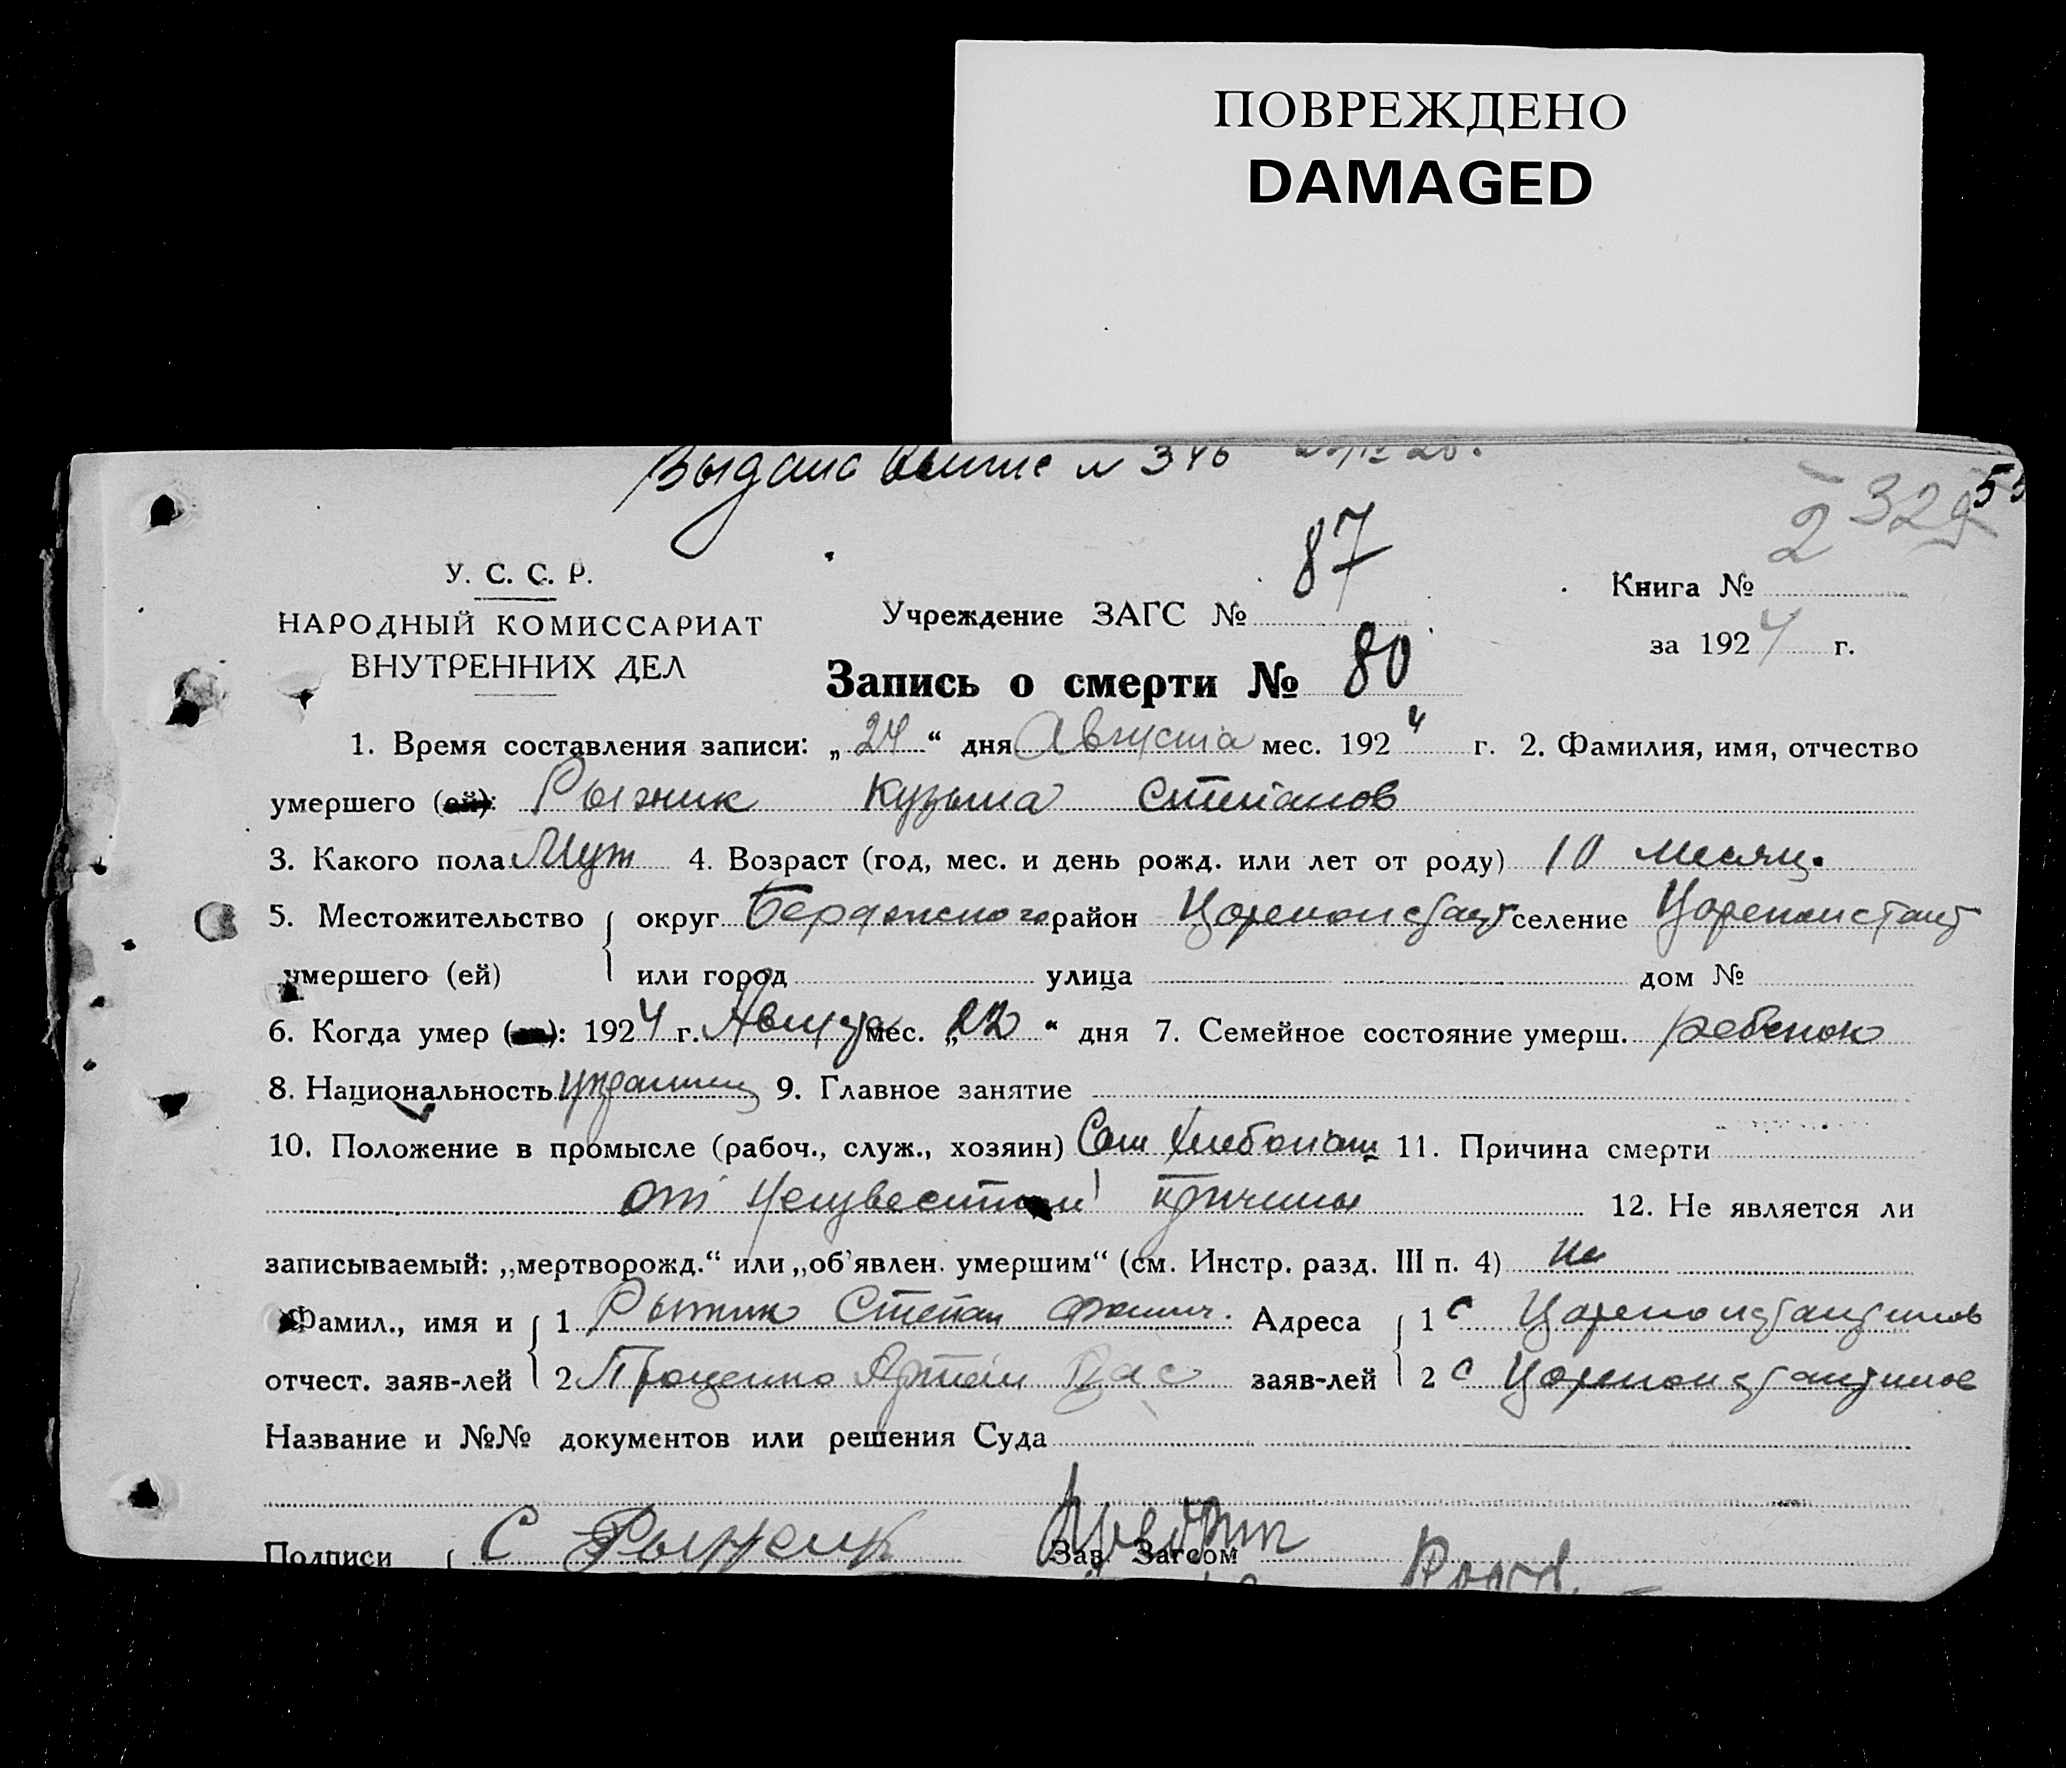 ПОВРЕЖДЕНО
DAMAGED
Выдано № 346
2 329 55
У. С. С. Р.
НАРОДНЫЙ КОМИССАРИАТ
ВНУТРЕННИХ ДЕЛ
Учреждение ЗАГС № 87
Книга №
за 1924 г.
Запись о смерти № 80
1. Время составления записи: „24“ дня Августа мес. 1924 г. 2. Фамилия, имя, отчество
умершего (ей): Рыжик Кузьма Степанов
3. Какого пола Муж 4. Возраст (год, мес. и день рожд. или лет от роду) 10 месяц.
5. Местожительство округ Бердянского район Цареконстант селение Цареконстант
умершего (ей) или город улица дом №
6. Когда умер ( ): 1924 г. Августа мес. „22“ дня 7. Семейное состояние умерш. ребенок
8. Национальность украинец 9. Главное занятие
10. Положение в промысле (рабоч., служ., хозяин) Сын хлебопаш 11. Причина смерти
от неизвестной причины 12. Не является ли
записываемый: „мертворожд.“ или „об'явлен. умершим“ (см. Инстр. разд. III п. 4) не
Фамил., имя и 1 Рыжик Степан Адреса 1 с Цареконстантинов
отчест. заяв-лей 2 Проценко Артем заяв-лей 2 с Цареконстантинов
Название и №№ документов или решения Суда
Подписи С Рыжик Зав. Загсом